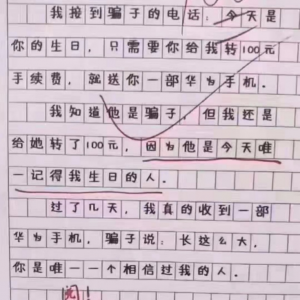 我接到骗子的电话：今天是
你的生日，只需要你给我转100元
手续费，就送你一部华为手机。
我知道他是骗子，但我还是
给她转了100元，因为他是今天唯
一记得我生日的人。
过了几天，我真的收到一部
华为手机，骗子说：长这么大，
你是唯一一个相信过我的人。
阅！